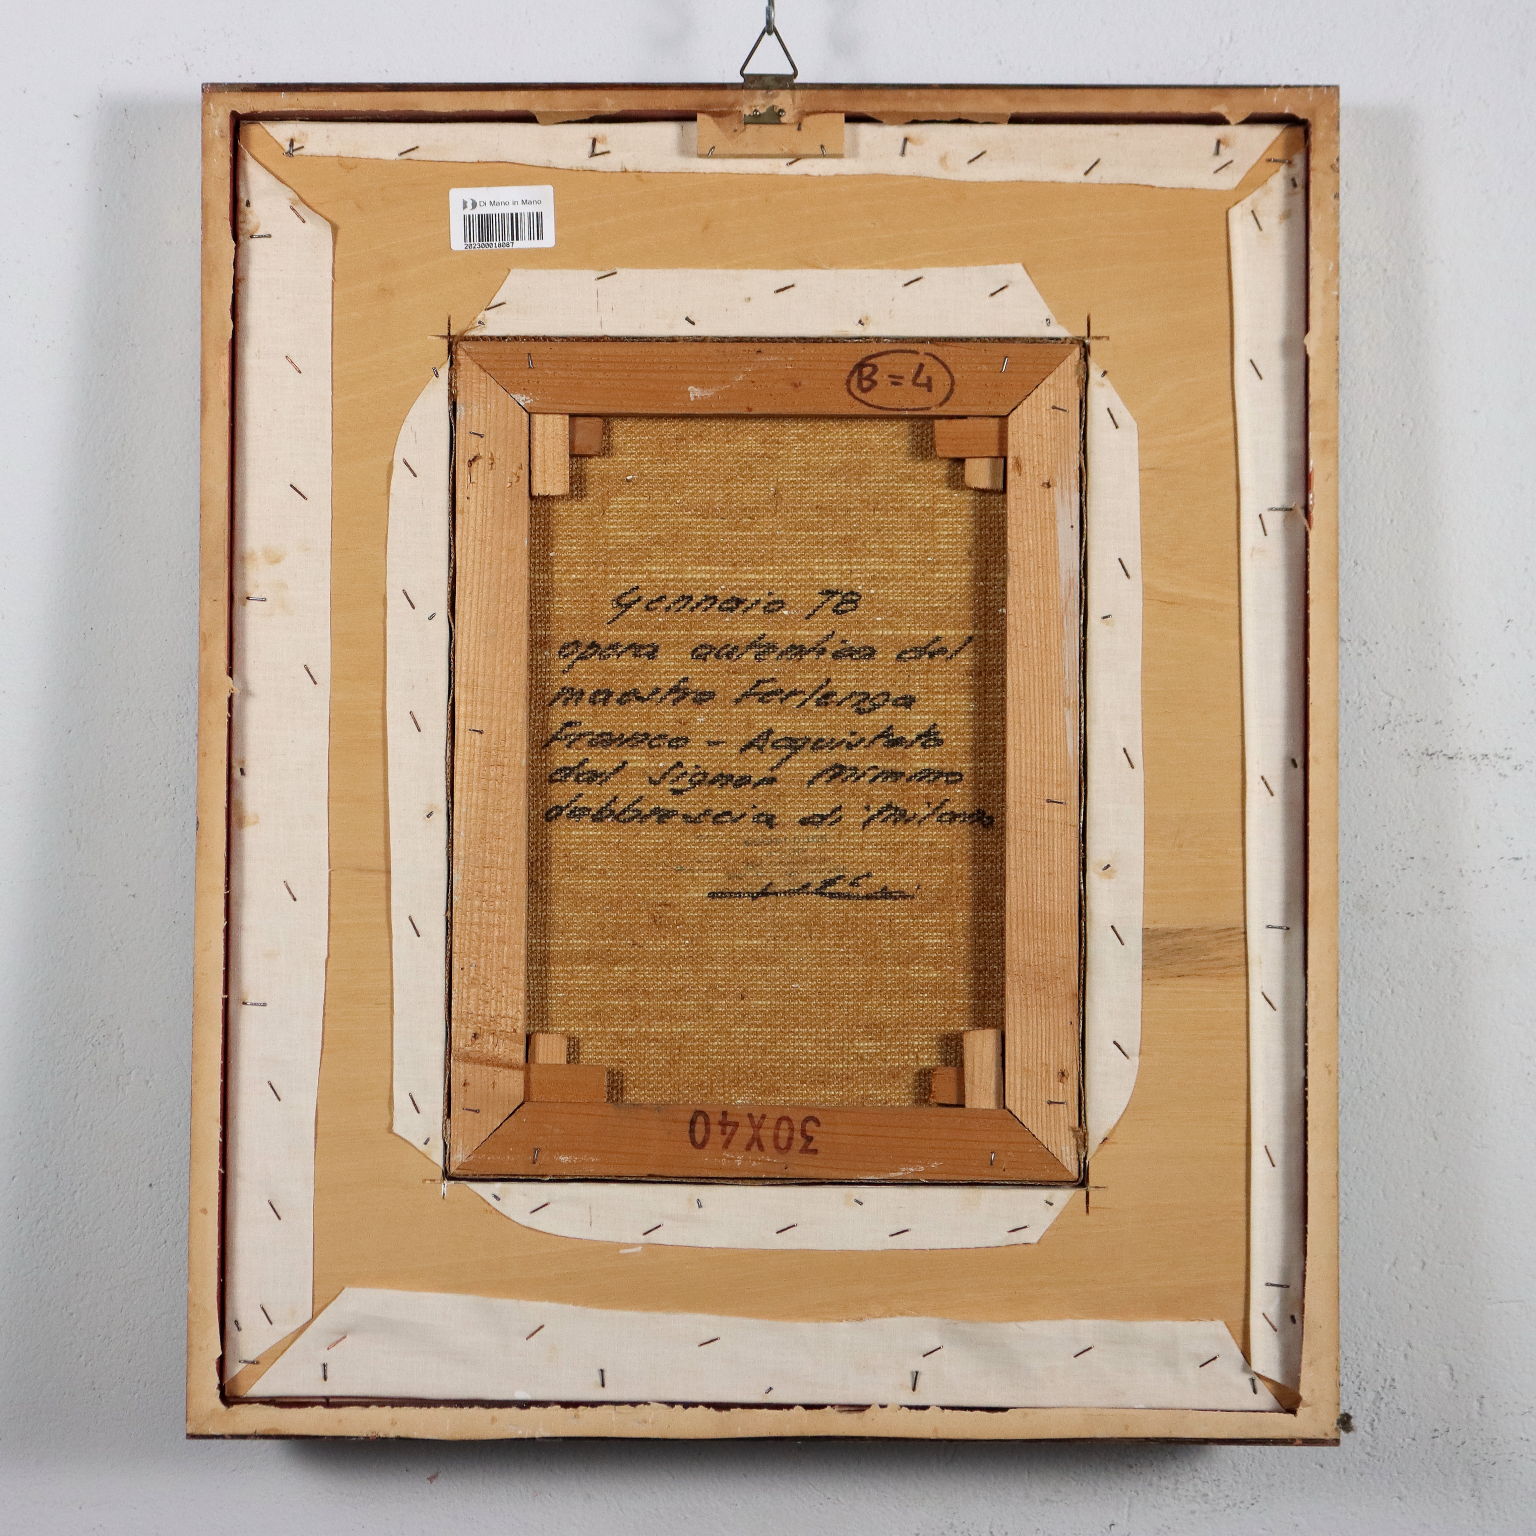 Di Mano in Mano
202300018087
B=4
Gennaio 78
opera autentica del
maestro Ferlenga
Franco - Acquistato
dal Signor Mimmo
dabbrescia di Milano
30X40